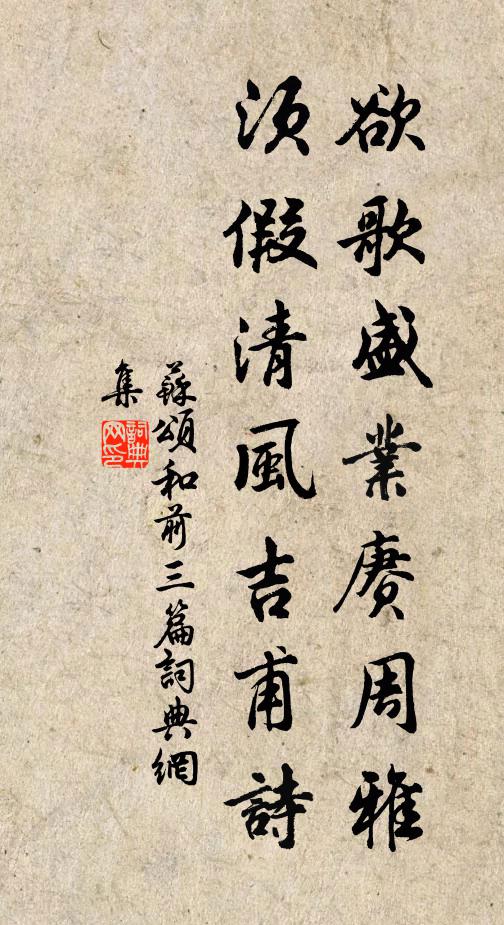 欲歌盛業賡周雅
須假清風吉甫詩
蘇頌和前三篇詞典網
集
詞典
网印